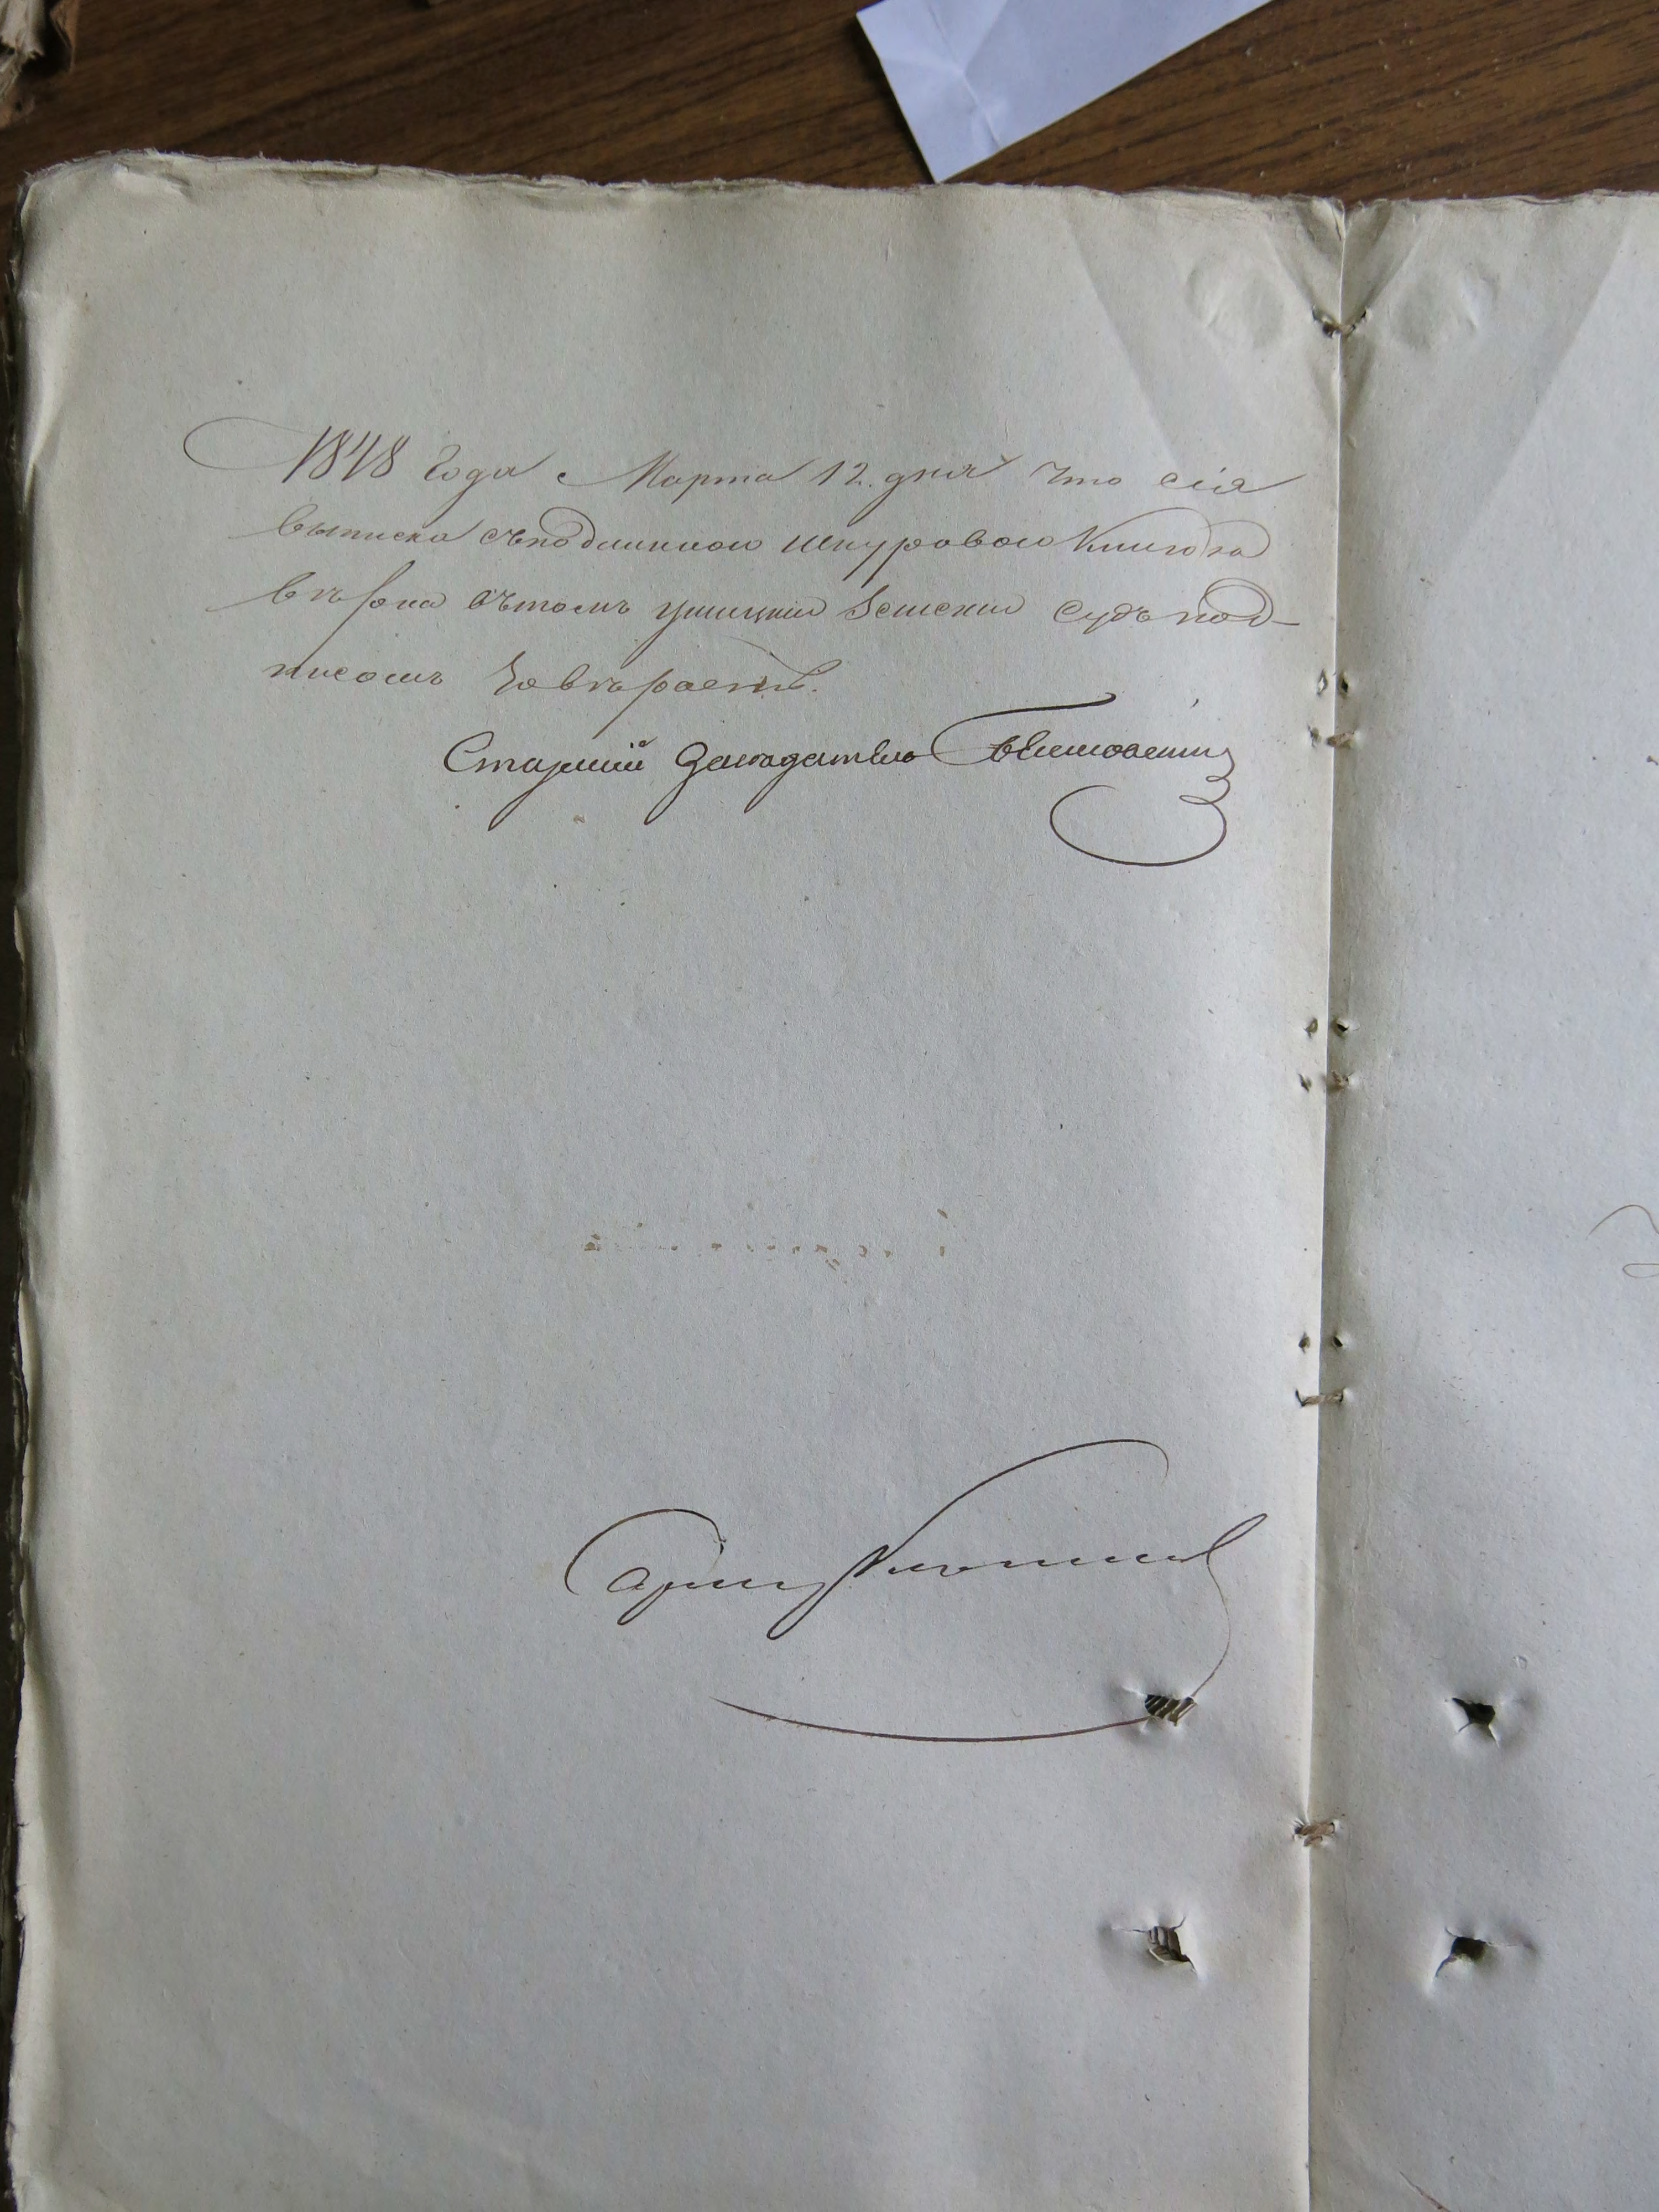 1848 года Марта 12. дня что сія
выписка съ подлинною шнуровою Книгою
вѣрна въ томъ Ушицкій Земскій Судъ под-
писомъ завѣраетъ.
Старшій Заседатель